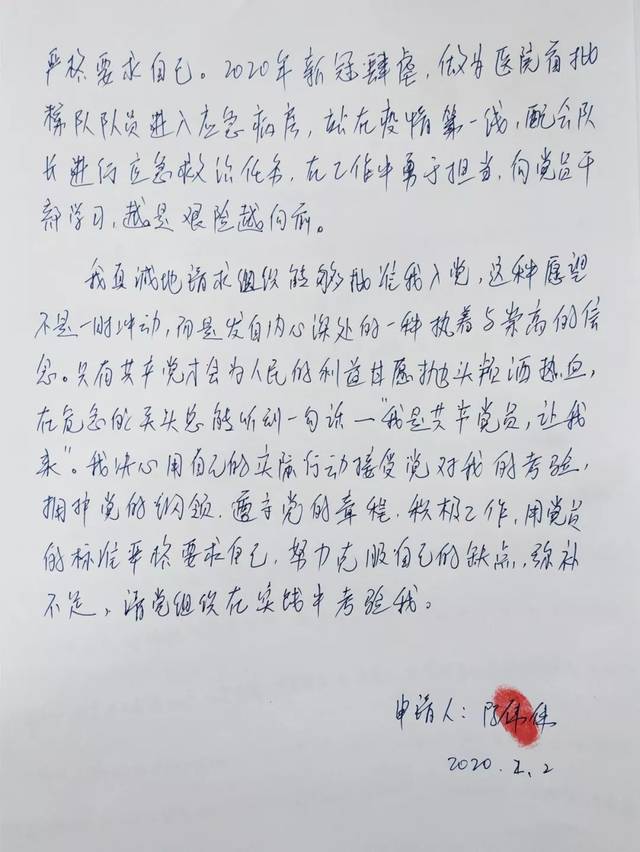 严格要求自己。2020年新冠肆虐，做为医院首批
梯队队员进入应急病房，站在疫情第一线，配合队
长进行应急救治任务，在工作中勇于担当，向党员干
部学习，越是艰险越向前。
我真诚地请求组织能够批准我入党，这种愿望
不是一时冲动，而是发自内心深处的一种执着与崇高的信
念。只有共产党才会为人民的利益甘愿抛头颅洒热血，
在危急的关头总能听到一句话—"我是共产党员，让我
来"。我决心用自己的实际行动接受党对我的考验，
拥护党的纲领，遵守党的章程，积极工作，用党员
的标准严格要求自己，努力克服自己的缺点，弥补
不足，请党组织在实践中考验我。
申请人：陈伟伟
2020.2.2